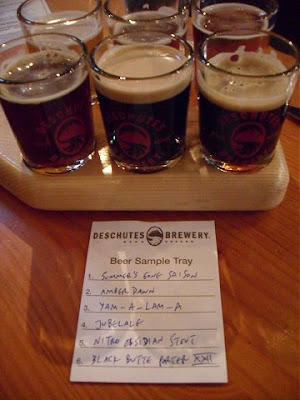 DESCHUTES
DESCHUTES
DESCHUTES
DESCHUTES BREWERY.
Beer Sample Tray
1. SUMMER'S GONE SAISON
2. AMBER DAWN
3. YAM-A-LAM-A
4. JUBELALE
5. NITRO OBSIDIAN STOUT
6. BLACK BUTTE PORTER XXII